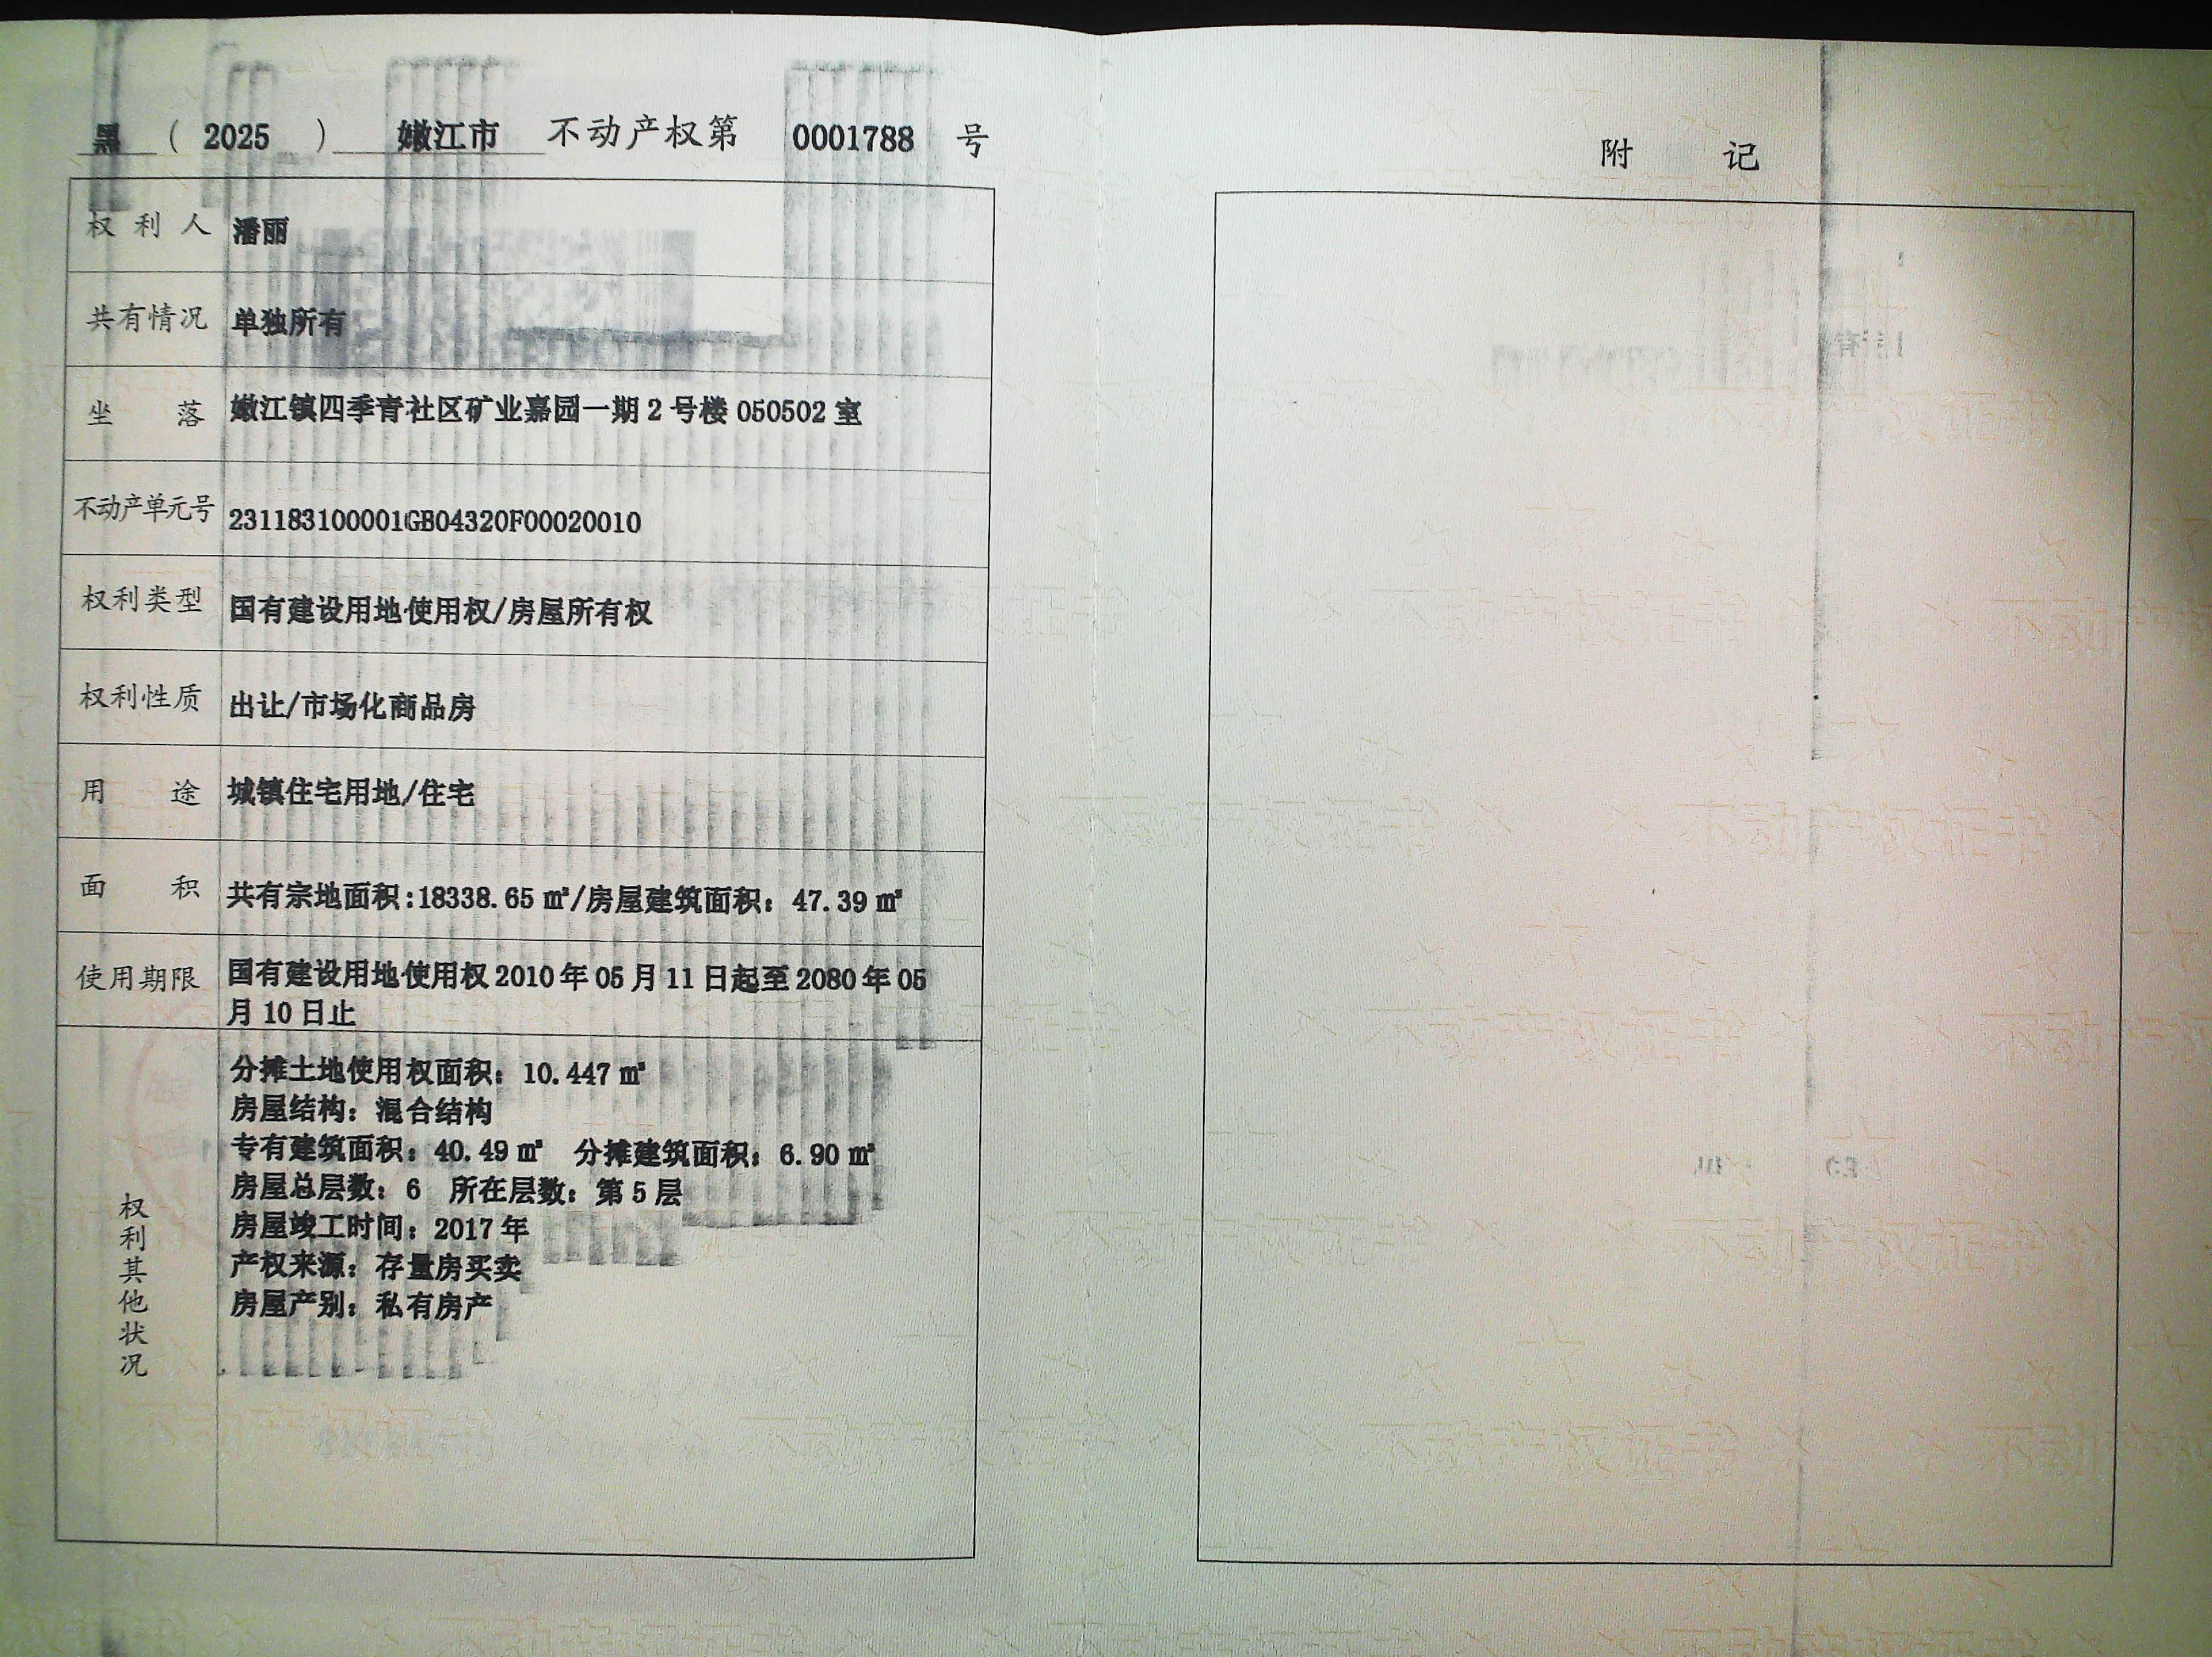 黑（2025）嫩江市不动产权第0001788号
权利人 潘丽
共有情况 单独所有
坐落 嫩江镇四季青社区矿业嘉园一期2号楼050502室
不动产单元号 231183100001GB04320F00020010
权利类型 国有建设用地使用权/房屋所有权
权利性质 出让/市场化商品房
用途 城镇住宅用地/住宅
面积 共有宗地面积:18338.65㎡/房屋建筑面积：47.39㎡
使用期限 国有建设用地使用权2010年05月11日起至2080年05
月10日止
权利其他状况
分摊土地使用权面积：10.447㎡
房屋结构：混合结构
专有建筑面积：40.49㎡ 分摊建筑面积：6.90㎡
房屋总层数：6 所在层数：第5层
房屋竣工时间：2017年
产权来源：存量房买卖
房屋产别：私有房产
附记